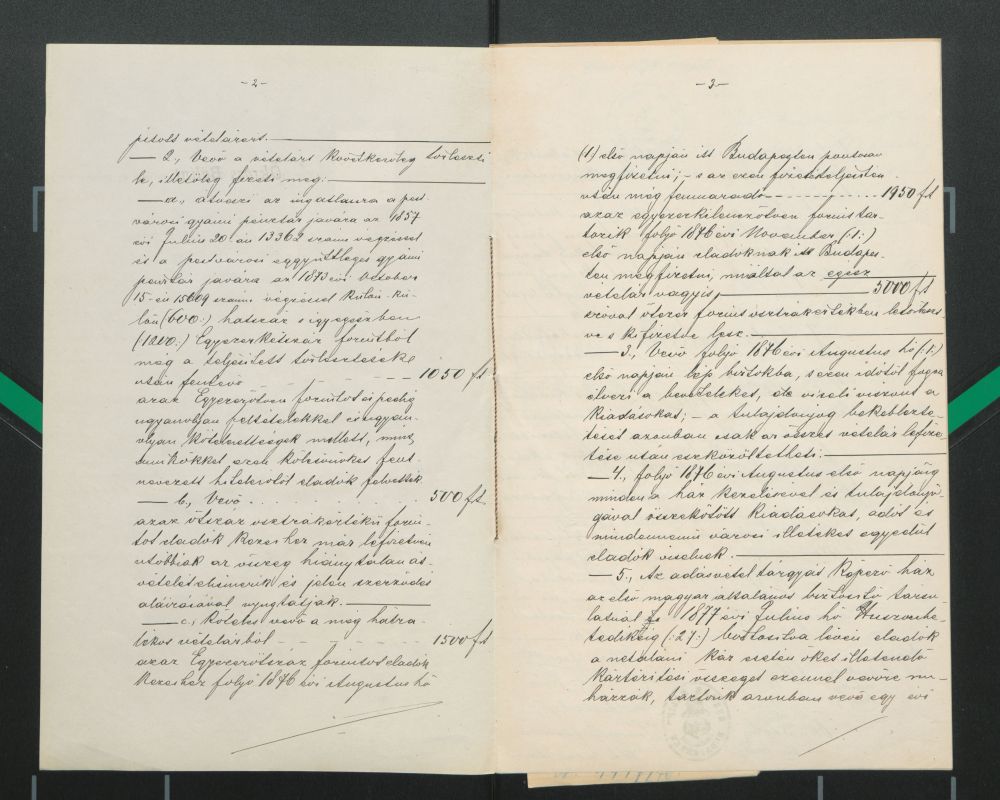 -2-
pitott vételárért.
— 2., Vevő a vételárt következőleg törleszti
le, illetőleg fizeti meg:
— a., átveszi az ingatlanra a pest-
városi gyámi pénztár javára az 1857
évi Julius 20-án 13362 számu végzéssel
és a pestvárosi eggyüttleges gyámi
pénztár javára az 1873 évi October
15-én 15609 számu végzéssel külön-kü-
lön (600:) hatszáz s igy egészben
(1200:) Egyezerkétszáz forintból
még a teljesített törlesztések
után fenlevő - - - - - - 1050 ft
azaz Egyezerötven forintot és pedig
ugyanolyan feltételekkel és ugyan-
olyan kötelezettségek mellett, mint
aminőkkel ezen kölcsönöket fent-
nevezett hitelezőtől eladók felvették.
— b., Vevő . . . . . . . . . 500 ft.
azaz ötszáz osztrákértékü forin-
tot eladók kezeihez már lefizetvén
utóbbiak az összeg hiánytalan át-
vételét elismerik és jelen szerződés
aláirásával nyugtatják.
— c., Köteles vevő a még hátra-
lékos vételárból - - - - - 1500 ft
azaz Egyezerötszáz forintot eladók
kezeihez folyó 1876 évi Augustus hó
-3-
(1.) első napján itt Budapesten pontosan
megfizetni; - s az ezen fizetés teljesítése
után még fennmaradó - - - - - 1950 ft
azaz egyezerkilenczötven forint tar-
tozik folyó 1876 évi November (:1:)
első napján eladóknak itt Budapes-
ten megfizetni, miáltal az egész
vételár vagyis, 5000 ft
szóval ötezer forint osztrákértékben letörleszt-
ve s kifizetve lesz.
— 3., Vevő folyó 1876 évi Augustus hó (:1:)
első napján lép birtokba, s ezen időtől fogva
élvezi a bevételeket, de viseli viszont a
kiadásokat; - a tulajdonjog bekeblezte-
tését azonban csak az összes vételár lefize-
tése után eszközöltetheti.
— 4., folyó 1876 évi Augustus első napjáig
minden a ház kezelésével és tulajdonjo-
gával összekötött kiadásokat, adót és
mindennemü városi illetéket egyedül
eladók viselnek.
— 5., Az adásvétel tárgyát képező ház
az első magyar általános biztositó társu-
latnál 1877 évi Julius hó Huszonhe-
tedikéig (:27:) biztositva lévén eladók
a netaláni kár esetén őket illetendő
kártéritési összeget ezennel vevőre ru-
házzák, tartozik azonban vevő egy évi